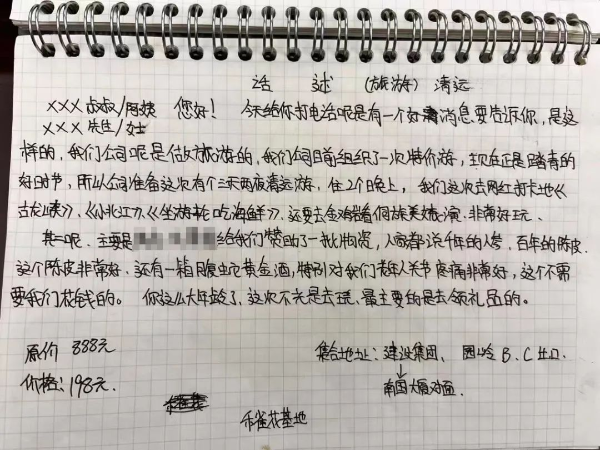 话 述 (旅游) 清远
××× 叔叔/阿姨 您好！ 今天给你打电话呢是有一个好消息要告诉你，是这
××× 先生/女士
样的，我们公司呢是做旅游的，我们公司目前组织了一次特价游，现在正是踏青的
好时节，所以公司准备这次有个三天两夜清远游，住2个晚上，我们这次去网红打卡地《
古龙峡》、《小北江》、《坐游船吃海鲜》、还要去金鸡岩看侗族美女表演、非常好玩、
其二呢、主要是 给我们赞助了一批物资，人家都说千年的人参、百年的陈皮、
这个陈皮非常好、还有一箱腹蛇黄金酒，特别对我们老年人关节疼痛非常好，这个不需
要我们花钱的。 你这么大年龄了，这次不光是去玩、最主要的是去领礼品的。
原价 888元 集合地址：建设集团、园岭B、C出口.
价格：198元. 南国大厦对面.
禾雀花基地